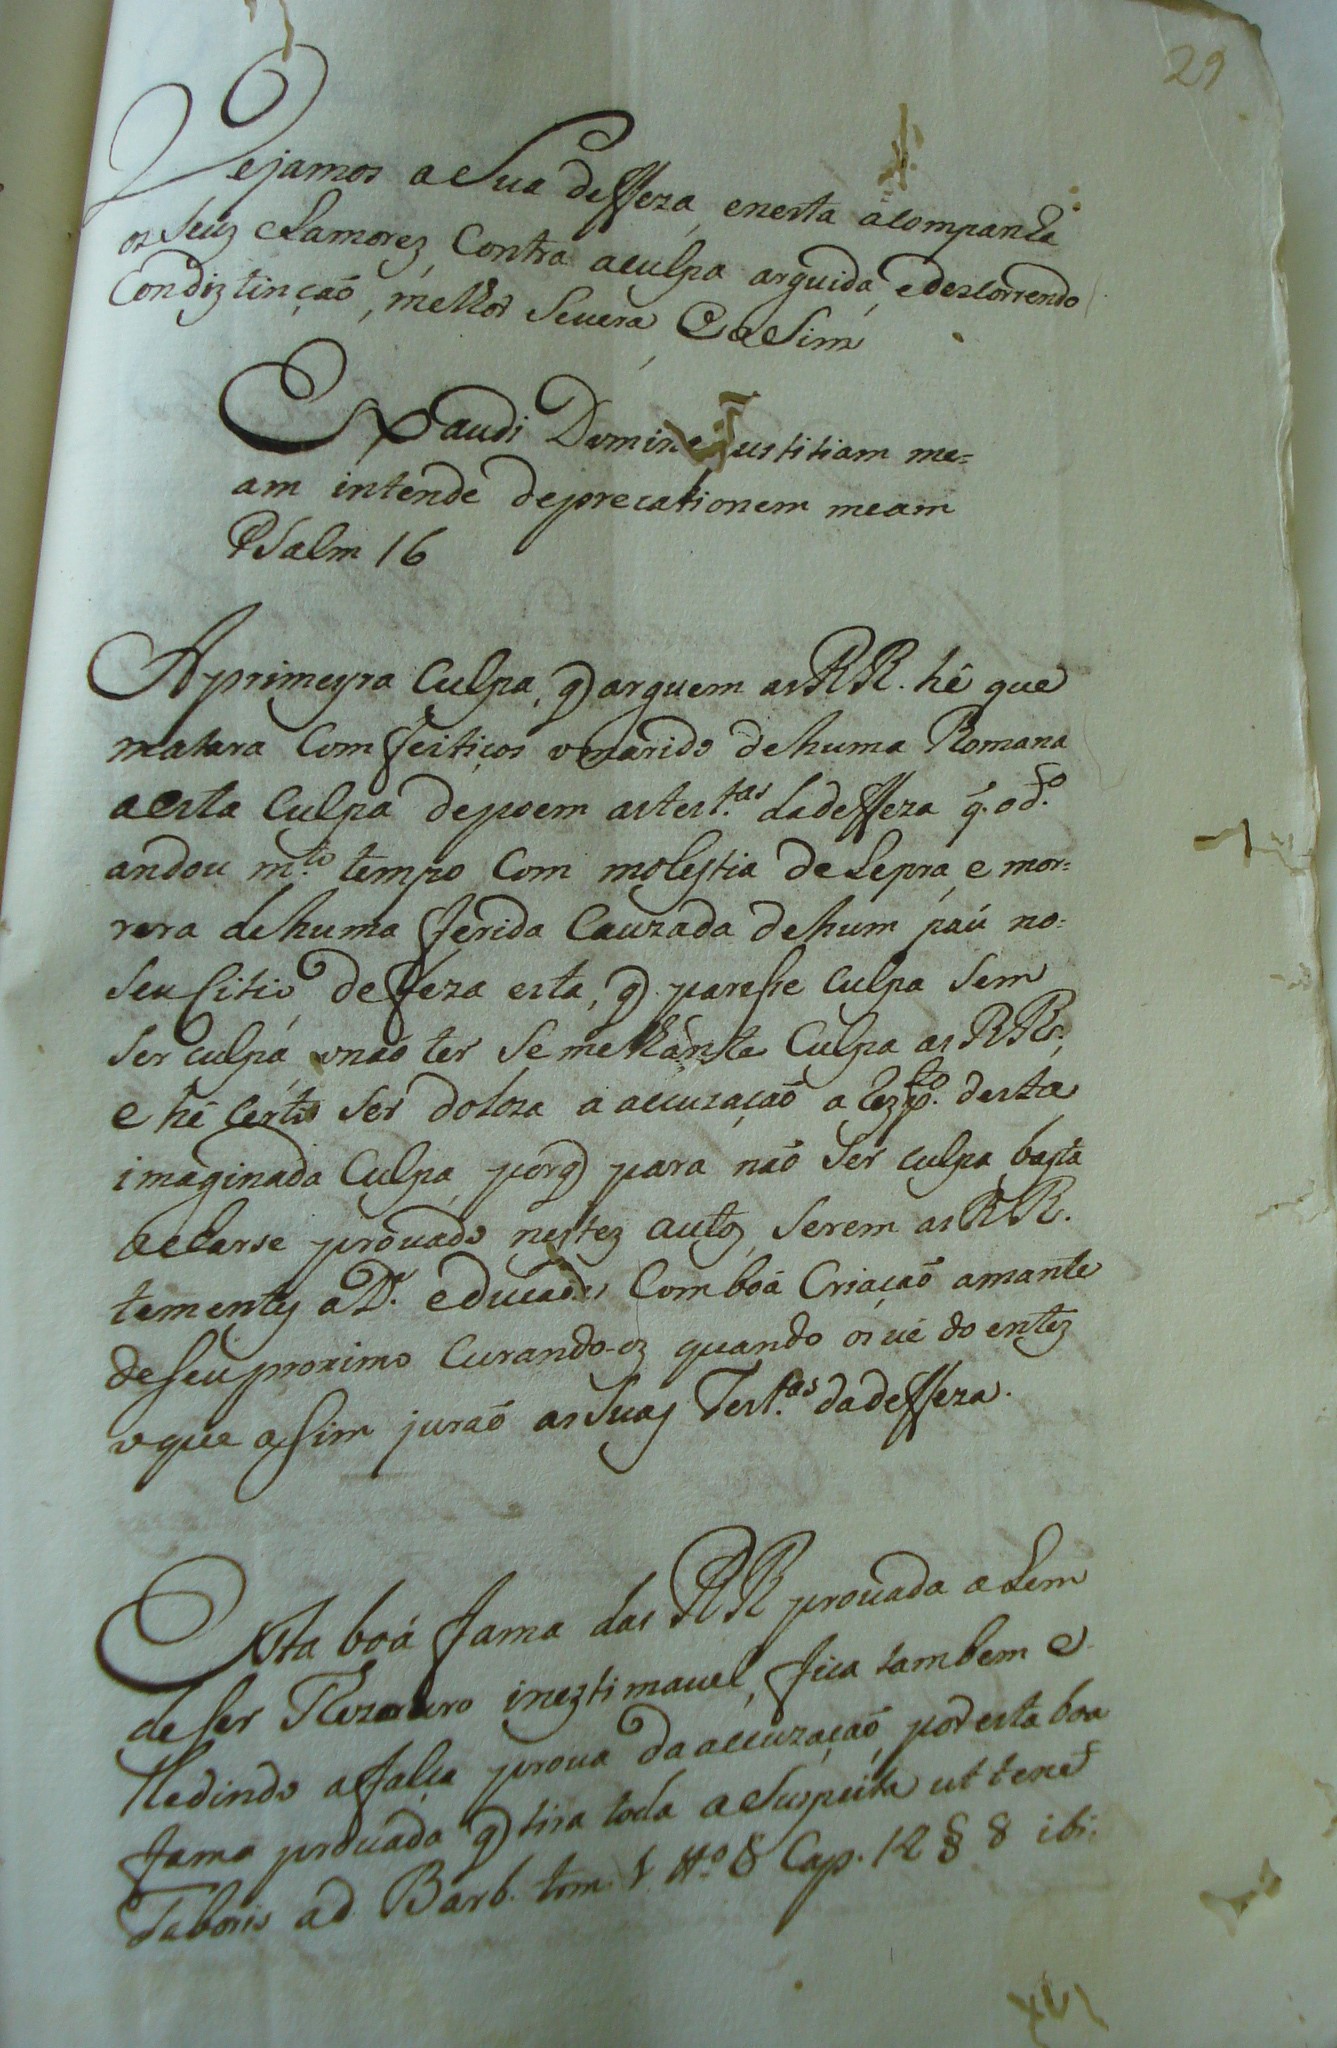 29
Vejamos a Sua deffeza, enesta acompanha
os Seuz Clamorez Contra aculpa arguida, edescorrendo
Condiztinção, melhor Severa, E aSim
Exaudi Domine justitiam me=
am intende deprecationem meam
PSalm 16
Aprimeyra Culpa, q̃ arguem asRR. hê que
matara Com feitiços omarido dehuma Romana
aesta Culpa depoem astest.as dadeffeza q̃. od.o
andou m.to tempo Com molestia deLepra, e mor=
rera dehuma ferida Cauzada dehum páu no=
Seu Citio deffeza esta, q̃ paresse culpa Sem
Ser culpa, onão ter Semelhante Culpa asRR,
e hê Certo Ser doloza a accuzação a resp.to desta
imaginada Culpa, porq̃ para não Ser culpa, basta
acharse provado neztez autoz, Serem asRR.
tementes aD.s educadas Comboá Criação amante
deSeuproximo Curando-oz quando osvê doentez
oque aSim jurão asSuas Test.as dadeffeza.
Esta boá fama das RR provada alem
deSer Thezouro ineztimavel, fica tambem e
lledindo afalça prova daaccuzação, poresta boa
fama provada q̃ tira toda aSuspeita ut tenet
Taboris ad Barb. tom. 1 Cap. 12 § 8 ibi: